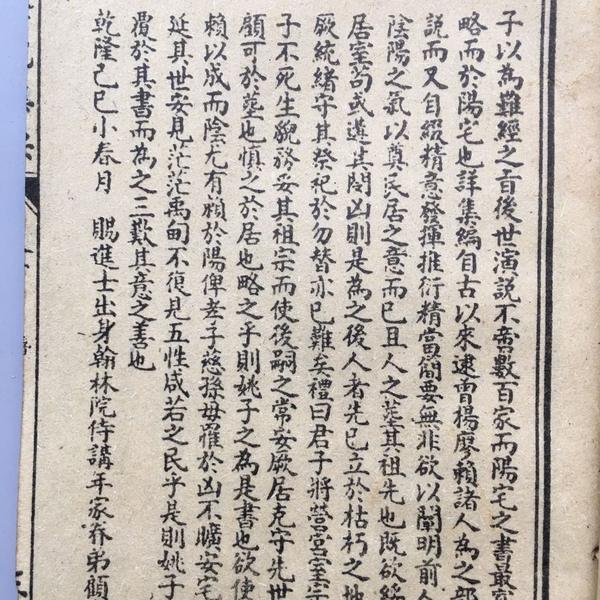 子以為難經之旨後世演說不啻數百家而陽宅之書最
略而於陽宅也詳集編自古以來逮曾楊廖賴諸人為之部
說而又自綴精意發揮推衍精當簡要無非欲以闡明前人
陰陽之氣以奠民居之意而已且人之塟其祖先也既欲綏
居室苟或遭其閉凶則是為之後人者先已立於枯朽之地
厥統緒守其祭祀於勿替亦已難矣禮曰君子將營宮室宗
子不死生貌務妥其祖宗而使後嗣之常安厥居克守先世
顧可於塟也慎之於居也略之乎則姚子之為是書也欲使
賴以成而陰尤有賴於陽俾孝子慈孫毋罹於凶不曠安宅
延其世安見茫茫禹甸不復見五性咸若之民乎是則姚子
覆於其書而為之三歎其意之善也
乾隆己巳小春月 賜進士出身翰林院侍講年家眷弟顧